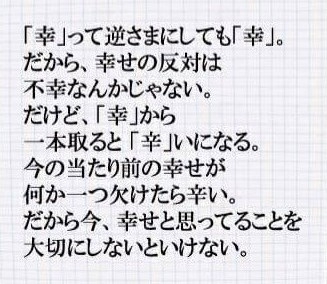 「幸」って逆さまにしても「幸」。
だから、幸せの反対は
不幸なんかじゃない。
だけど、「幸」から
一本取ると「辛」いになる。
今の当たり前の幸せが
何か一つ欠けたら辛い。
だから今、幸せと思ってることを
大切にしないといけない。